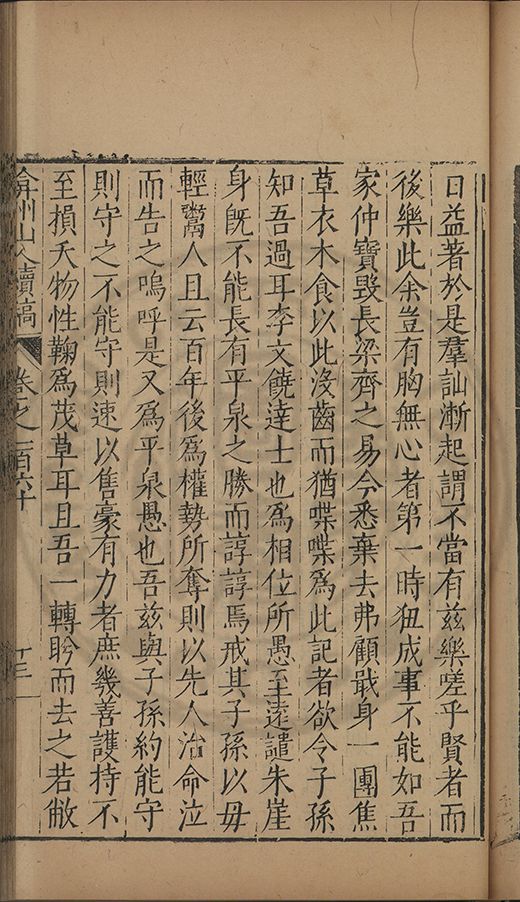 日益著於是羣訕漸起謂不當有茲樂嗟乎賢者而
後樂此余豈有胸無心者第一時狃成事不能如吾
家仲寶毀長梁齊之易今悉棄去弗顧戢身一團焦
草衣木食以此沒齒而猶喋喋為此記者欲令子孫
知吾過耳李文饒達士也為相位所愚至遠譴朱崖
身既不能長有平泉之勝而諄諄焉戒其子孫以毋
輕鬻人且云百年後為權勢所奪則以先人治命泣
而告之嗚呼是又為平泉愚也吾茲與子孫約能守
則守之不能守則速以售豪有力者庶幾善護持不
至損夭物性鞠為茂草耳且吾一轉盻而去之若敝
弇州山人續稿 卷之一百六十 十三